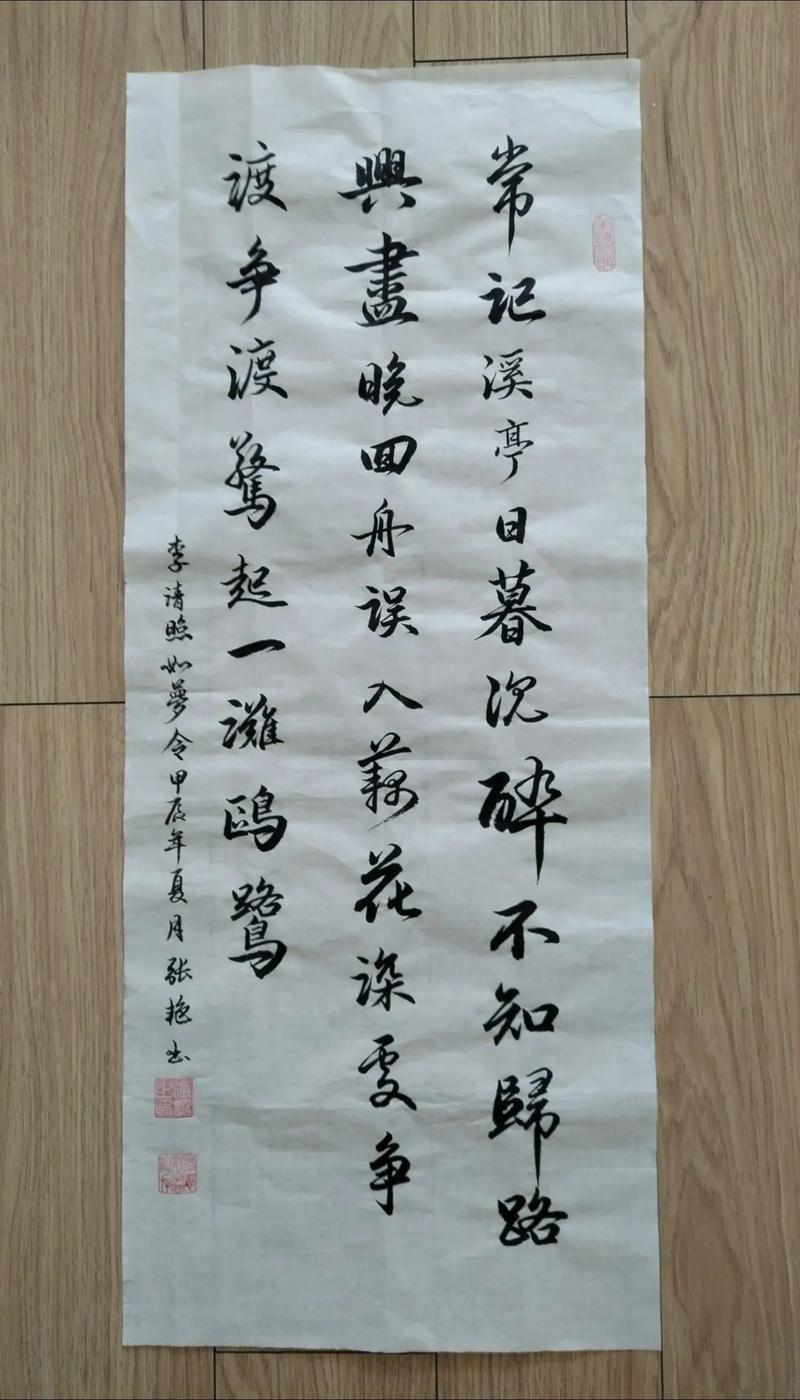 常记溪亭日暮沉醉不知歸路
興盡晚回舟误入藕花深處争
渡争渡驚起一灘鷗鷺
李清照如夢令甲辰年夏月張艳书